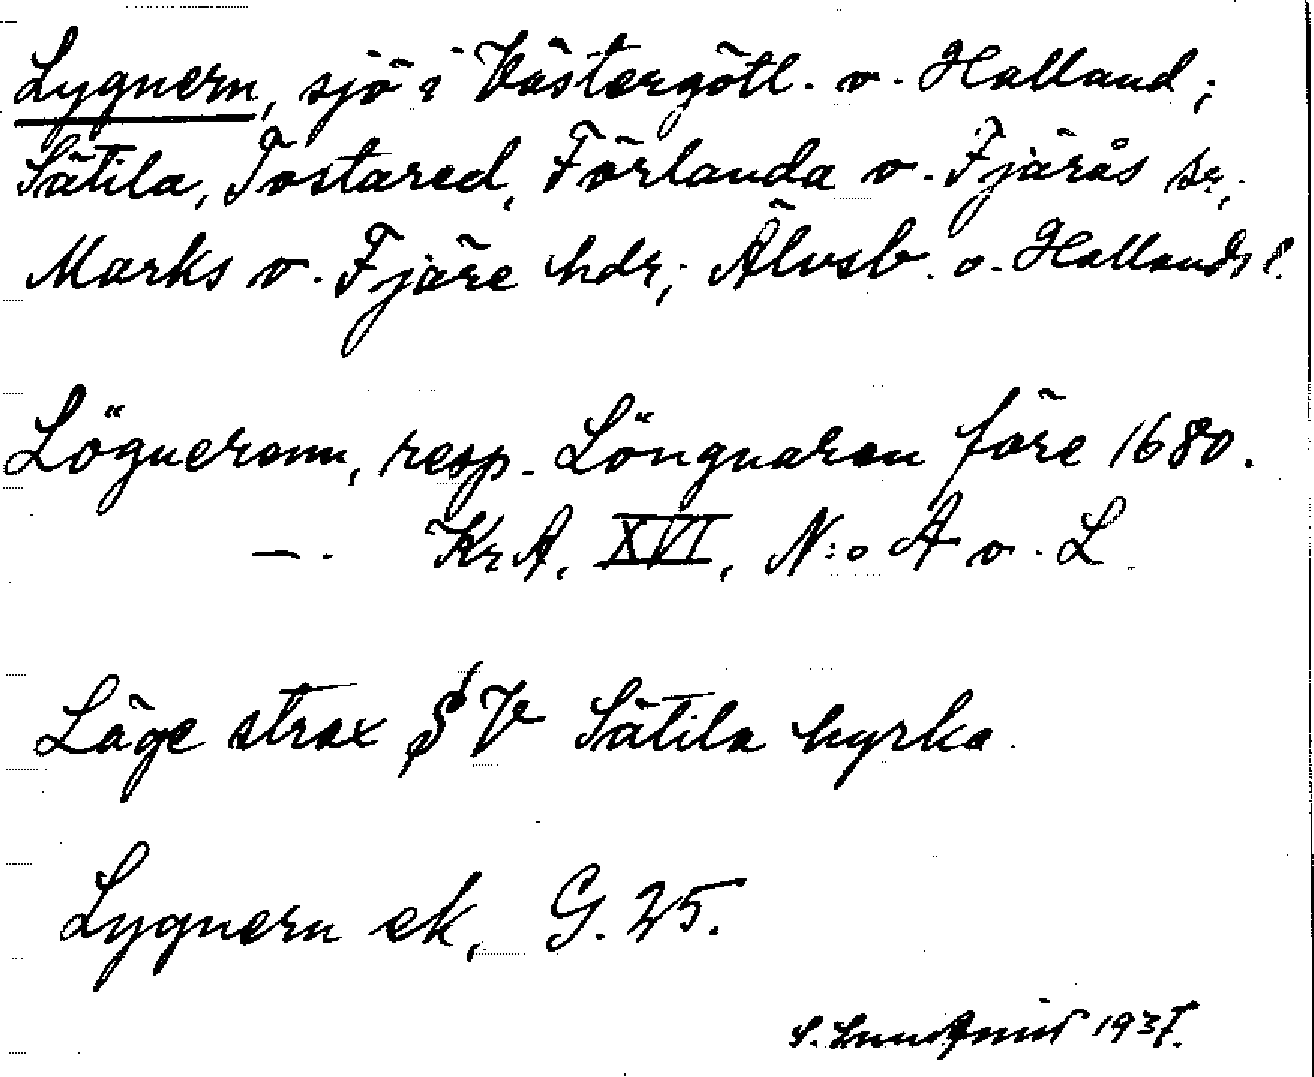 Lygnern, sjö i Västergötl. o. Halland;
Sätila, Tostared, Förlanda o. Fjärås sr,
Marks o. Fjäre hdr; Älvsb. o. Hallands l.
Lögneronn, resp. Löngnaren före 1680.
—. KrA, XVI, N:o A o. L
Läge strax S V Sätila kyrka.
Lygnern ek, G. 25.
S. Lundqvist 1937.